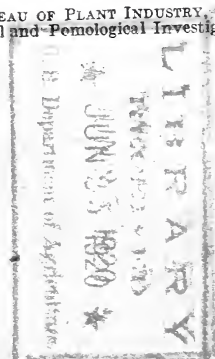 EAU OF PLANT INDUSTRY,
l and Pomological Investig
LIBRARY
★ JUN 1920 ★
U. S. Department of Agriculture